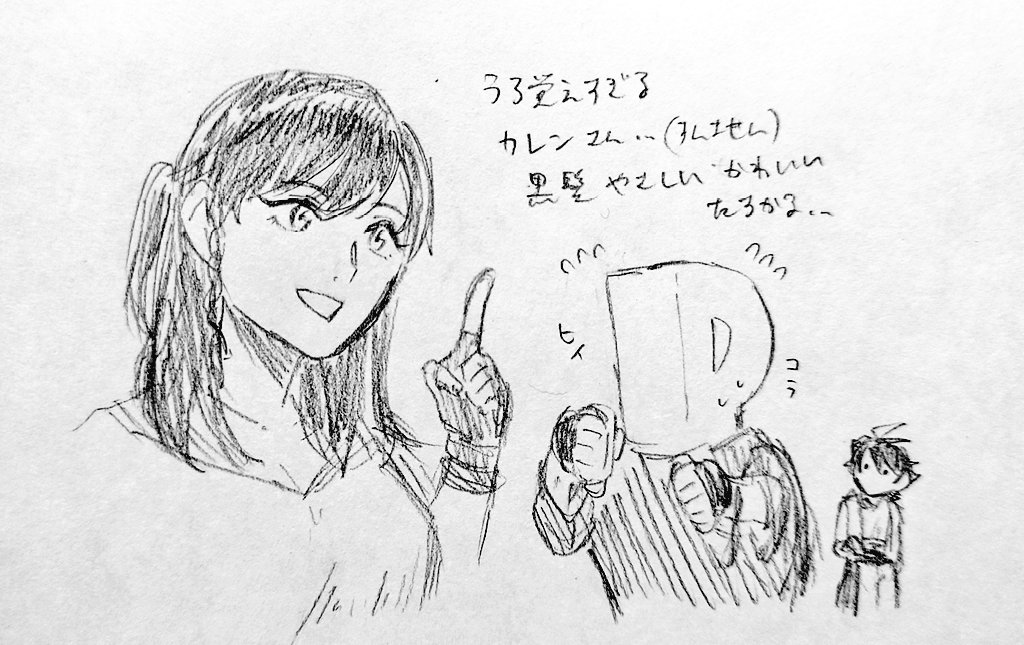 うろ覚えすぎる
カレンさん‥(すんません)
黒髪やさしいかわいい
たすかる‥
ヒィ
コラ
D